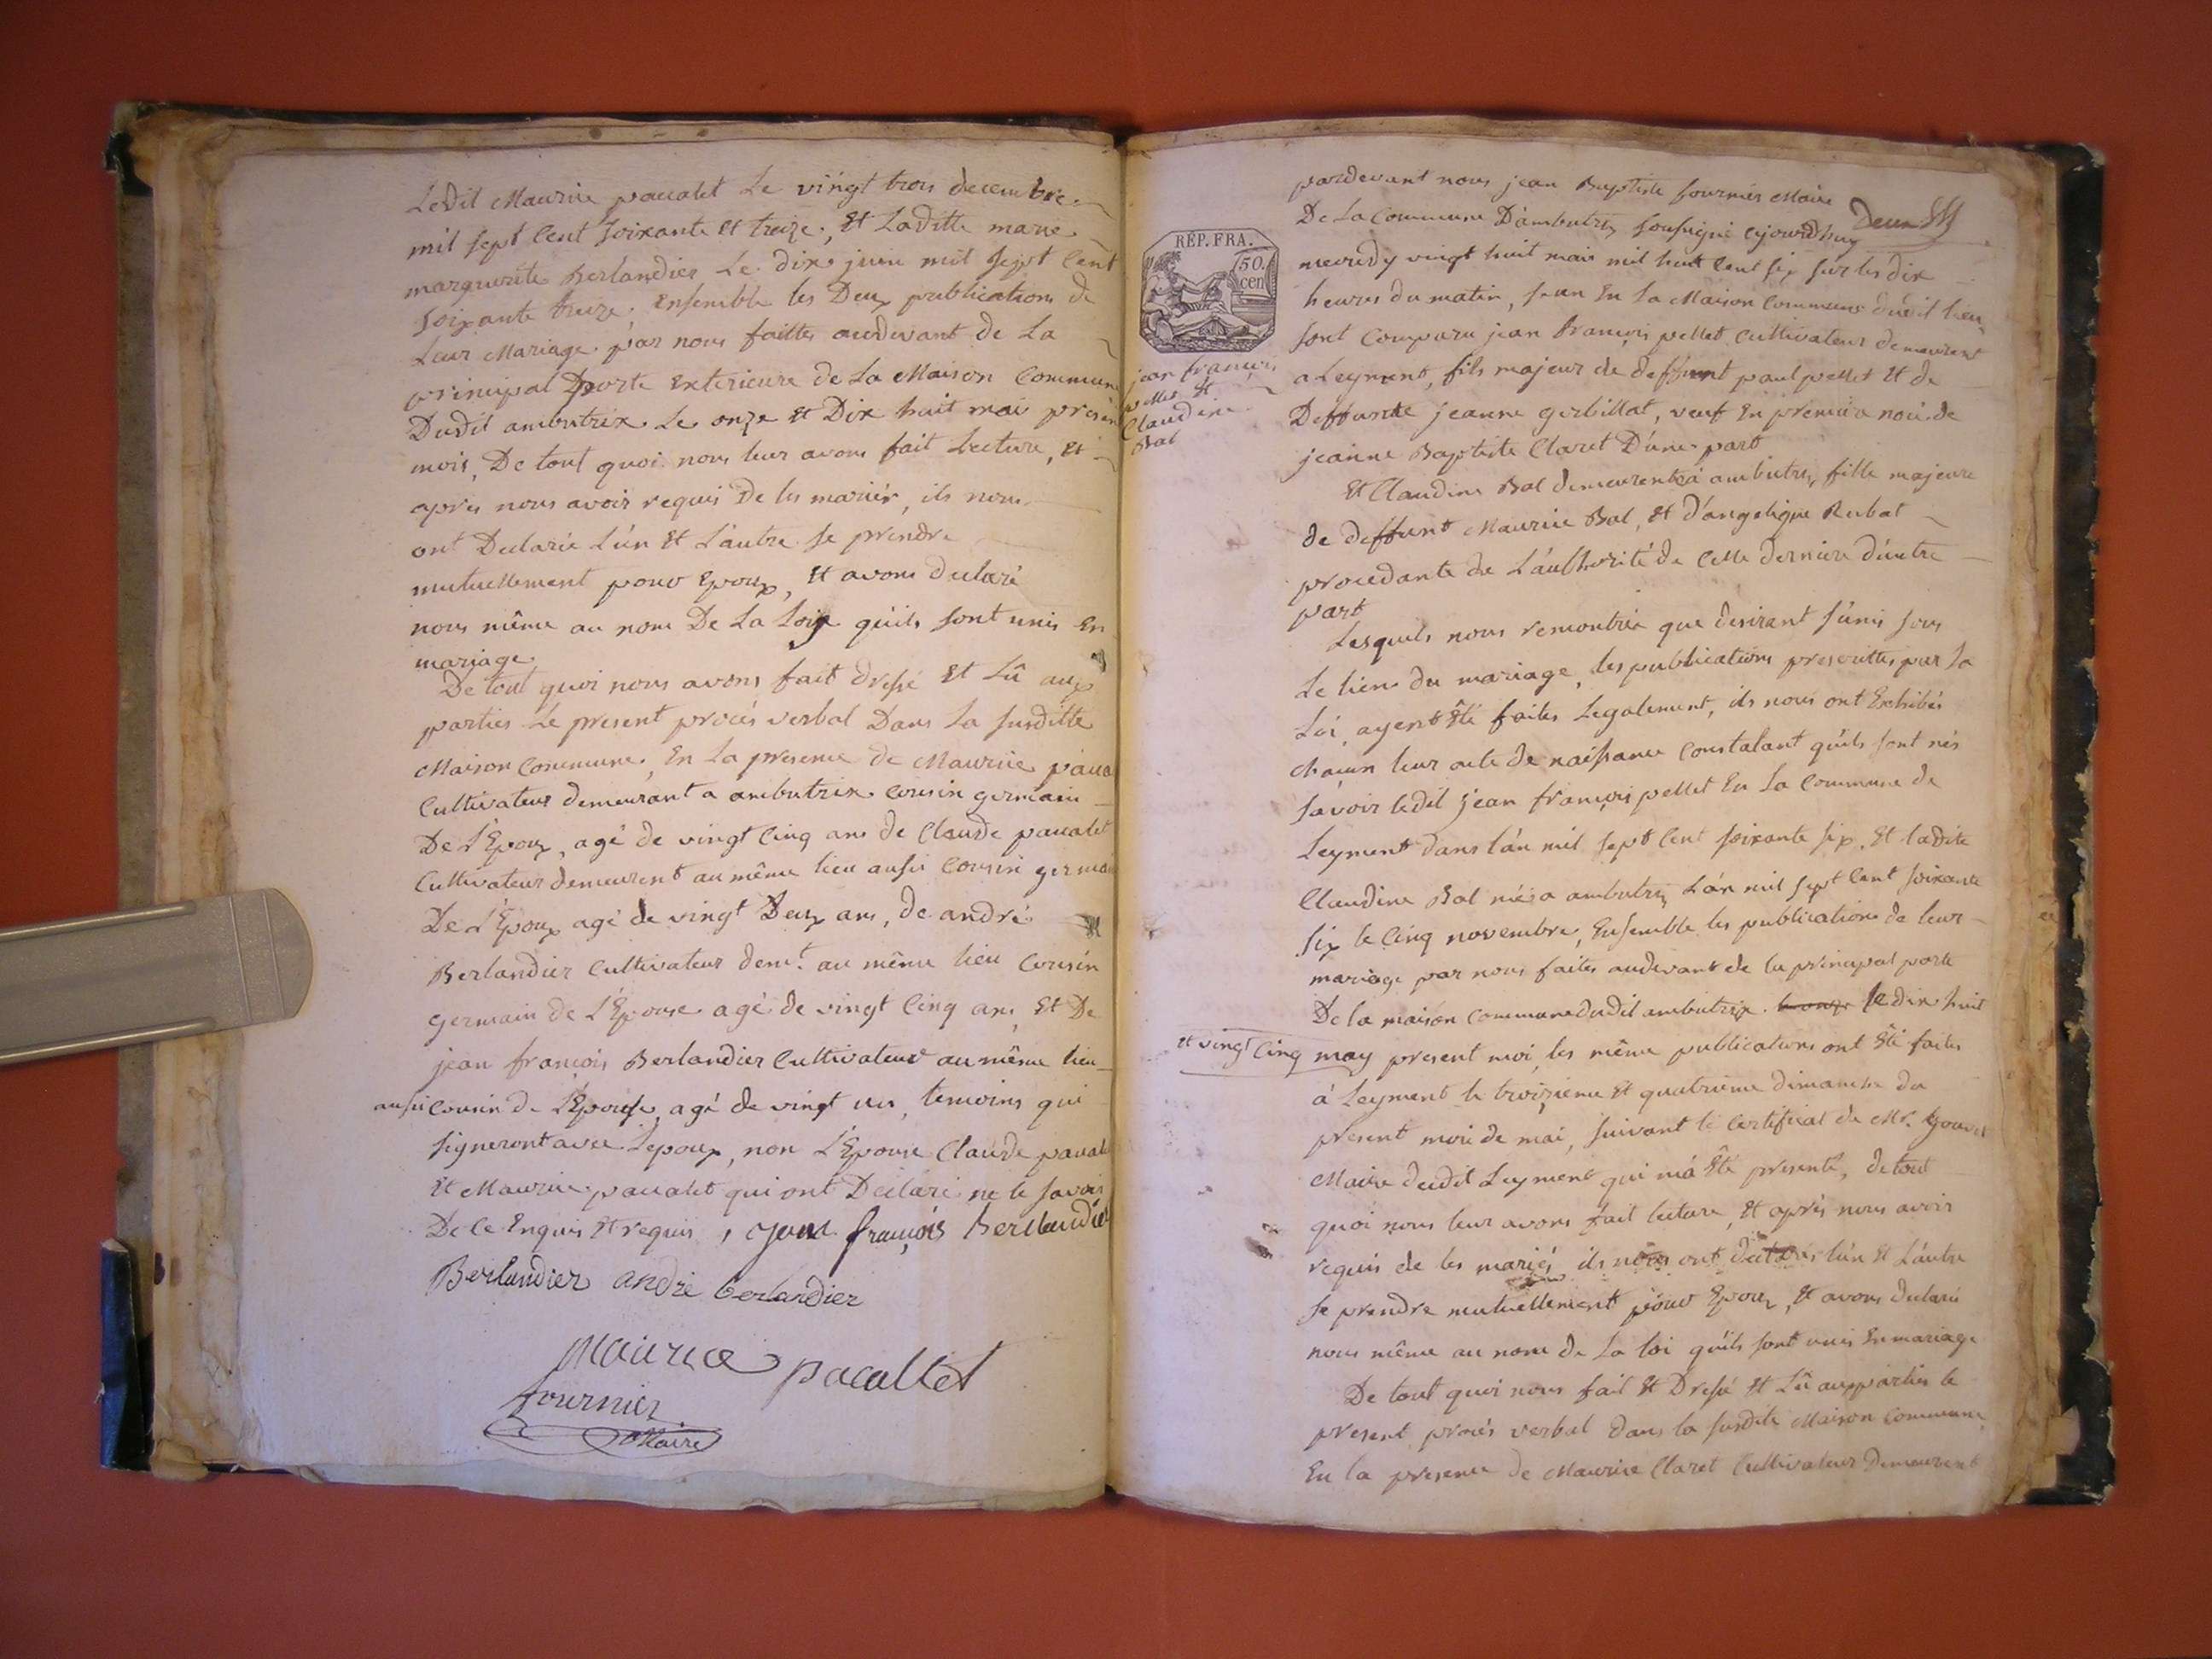 Ledit Maurice pacalet Le vingt trois decembre
mil sept Cent soixante et treize, Et Laditte marie
marguerite Berlandier Le dix juin mil sept Cent
soixante treize, Ensemble les Deux publications de
Leur Mariage par nous faittes audevant de La
principal porte Exterieure de La Maison Commune
Dudit ambutrix Le onze Et Dix huit mai present
mois, De tout quoi nous leur avons fait Lecture, Et
apres nous avoir requis De les mariér, ils nous
ont Declarie L'un Et L'autre se prendre
mutuellement pour Epoux, Et avons declaré
nous même au nom De La Loix qu'ils sont unis En
mariage.
De tout quoi nous avons fait dressé Et Lû aux
parties Le present procés verbal Dans La susditte
Maison Commune, En La presence de Maurice paca
Cultivateur demeurant a ambutrix Cousin germain
De L'Epoux, agé de vingt Cinq ans de Claude pacalet
Cultivateur demeurent au même lieu aussi Cousin germa
De L'Epoux agé de vingt Deux ans, de andré
Berlandier Cultivateur demt. au même lieu Cousin
germain de L'Epouse agé de vingt Cinq ans, Et De
jean françois Berlandier Cultivateur au même lieu
aussi Cousin de L'Epouse, agé de vingt un, temoins qui
signeront avec L'epoux, non L'Epouse Claude pacale
Et Maurice pacalet qui ont Déclaré ne le savoir
De Ce Enquis Et requis, jean françois Berlandier
Berlandier andré berlandier
Maurice pacallet
fournier
Maire
pardevant nous jean Baptiste fournier Maire
De La Commune D'ambutrix soussigné ajourdhuy
mecredy vingt huit mais mil huit Cent six sur les dix
heures du matin, En La Maison Commune dudit lieu,
RÉP. FRA.
50.
cen
sont Comparu jean françois pellet Cultivateur demeurent
a Leyment, fils majeur de deffunt paul pellet Et de
jean françois
pellet Et
Claudine
Bal
Deffunte jeanne gerbillat, veuf En premier noce de
jeanne Baptiste Claret D'une part
Et Claudine Bal demeurent à ambutrix, fille majeure
de deffunt Maurice Bal, Et d'angelique Rubat
procedante de L'authorité de Cette derniere d'autre
part
Lesquels nous remontrée que desirant s'unir sous
Le lien du mariage, les publications prescrittes par la
Loi, ayent Été faites Legalement, ils nous ont Exhibés
chacun leur acte de naissance Constatant qu'ils sont nés
savoir ledit jean françois pellet En La Commune de
Leyment dans l'an mil sept Cent soixante six, Et ladite
Claudine Bal née a ambutrix L'an mil sept Cent soixante
six le Cinq novembre, Ensemble les publications de leur
mariage par nous faites audevant de la principal porte
De la maison Commune dudit ambutrix le onze le dix huit
et vingt Cinq may present moi, les même publications ont Été faites
à Leyment le troizieme Et quatrieme dimanche du
present moi de mai, suivant le Certificat de Mr.
Maire dudit Leyment qui m'a Été presenté, de tout
quoi nous leur avons fait lecture, Et après nous avoir
requis de les mariés, ils nous ont declarés l'un Et L'autre
se prendre mutuellement pour Epoux, Et avons declaré
nous même au nom de La loi qu'ils sont unis En mariage
De tout quoi nous fait Et Dressé Et Lû aux parties le
present procès verbal dans la susdite Maison Commune
En la presence de Maurice Claret Cultivateur Demeurent